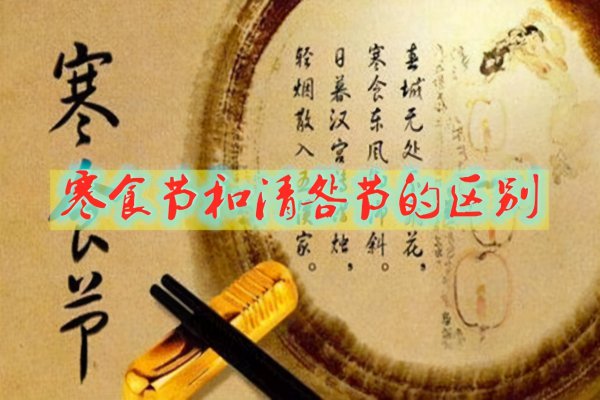 寒食节
春城无处花，
寒食东风斜。
日暮汉宫烛，
轻烟散入五侯家。
寒食节和清明节的区别